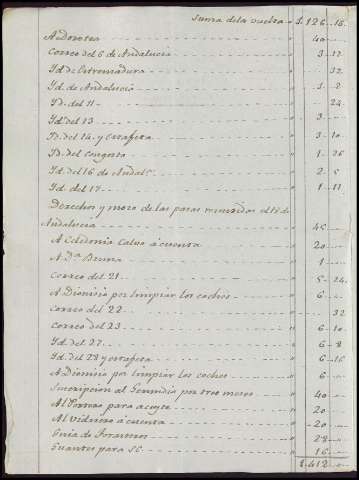 Suma dela vuelta " 1.126 .. 16.
A Dorotea " 40 ..
Correo del 6 de Andalucia " 3 .. 12
Yd. de Estremadura " 32
Yd. de Andalucia " 3 .. 2
Yd. del 11 " 24
Yd. del 13 " 3 ..
Yd. del 14. y estafeta " 3 .. 10
Yd. del Congosto " 1 .. 26
Yd. del 16 de Andalª. " 2 .. 8
Yd. del 17 " 1 .. 11
Derechos y mozo de las pasas remitidas el 18 de
Andalucia " 45 ..
A Celedonio Calvo á cuenta " 20 ..
A Dª Bruna " 1 ..
Correo del 21 " 5 .. 24
A Dionisio por limpiar los coches " 6 ..
Correo del 22 " 32
Correo del 23 " 6 .. 10
Yd. del 27 " 6 .. 8
Yd. del 28 y estafeta " 6 .. 16
A Dionisio por limpiar los coches " 6 ..
Suscripcion al por tres meses " 40 ..
para aceyte " 20 ..
Al Vidriero á cuenta " 20 ..
Guia de Forasteros " 28 ..
Guantes para S.E. " 16 ..
1.412 ..